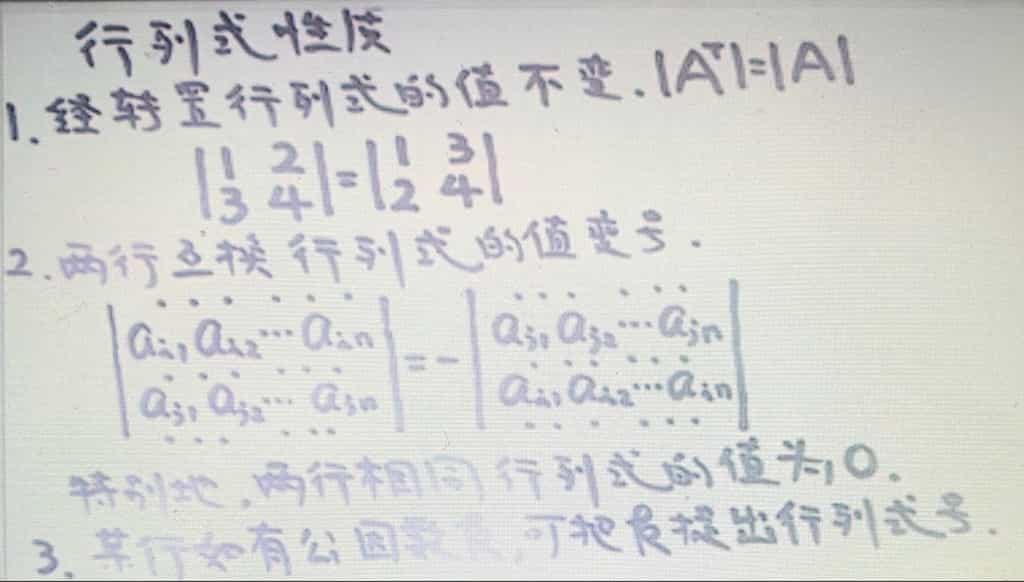 行列式性质
1. 经转置行列式的值不变. |Aᵀ|=|A|
|1 2| = |1 3|
|3 4|   |2 4|
2. 两行互换行列式的值变号.
| · · · · · · |   | · · · · · · |
| aᵢ₁, aᵢ₂ ··· aᵢₙ |   | aⱼ₁, aⱼ₂ ··· aⱼₙ |
| · · · · · · | = - | · · · · · · |
| aⱼ₁, aⱼ₂ ··· aⱼₙ |   | aᵢ₁, aᵢ₂ ··· aᵢₙ |
| · · · · · · |   | · · · · · · |
特别地, 两行相同行列式的值为0.
3. 某行如有公因数k, 可把k提出行列式号.